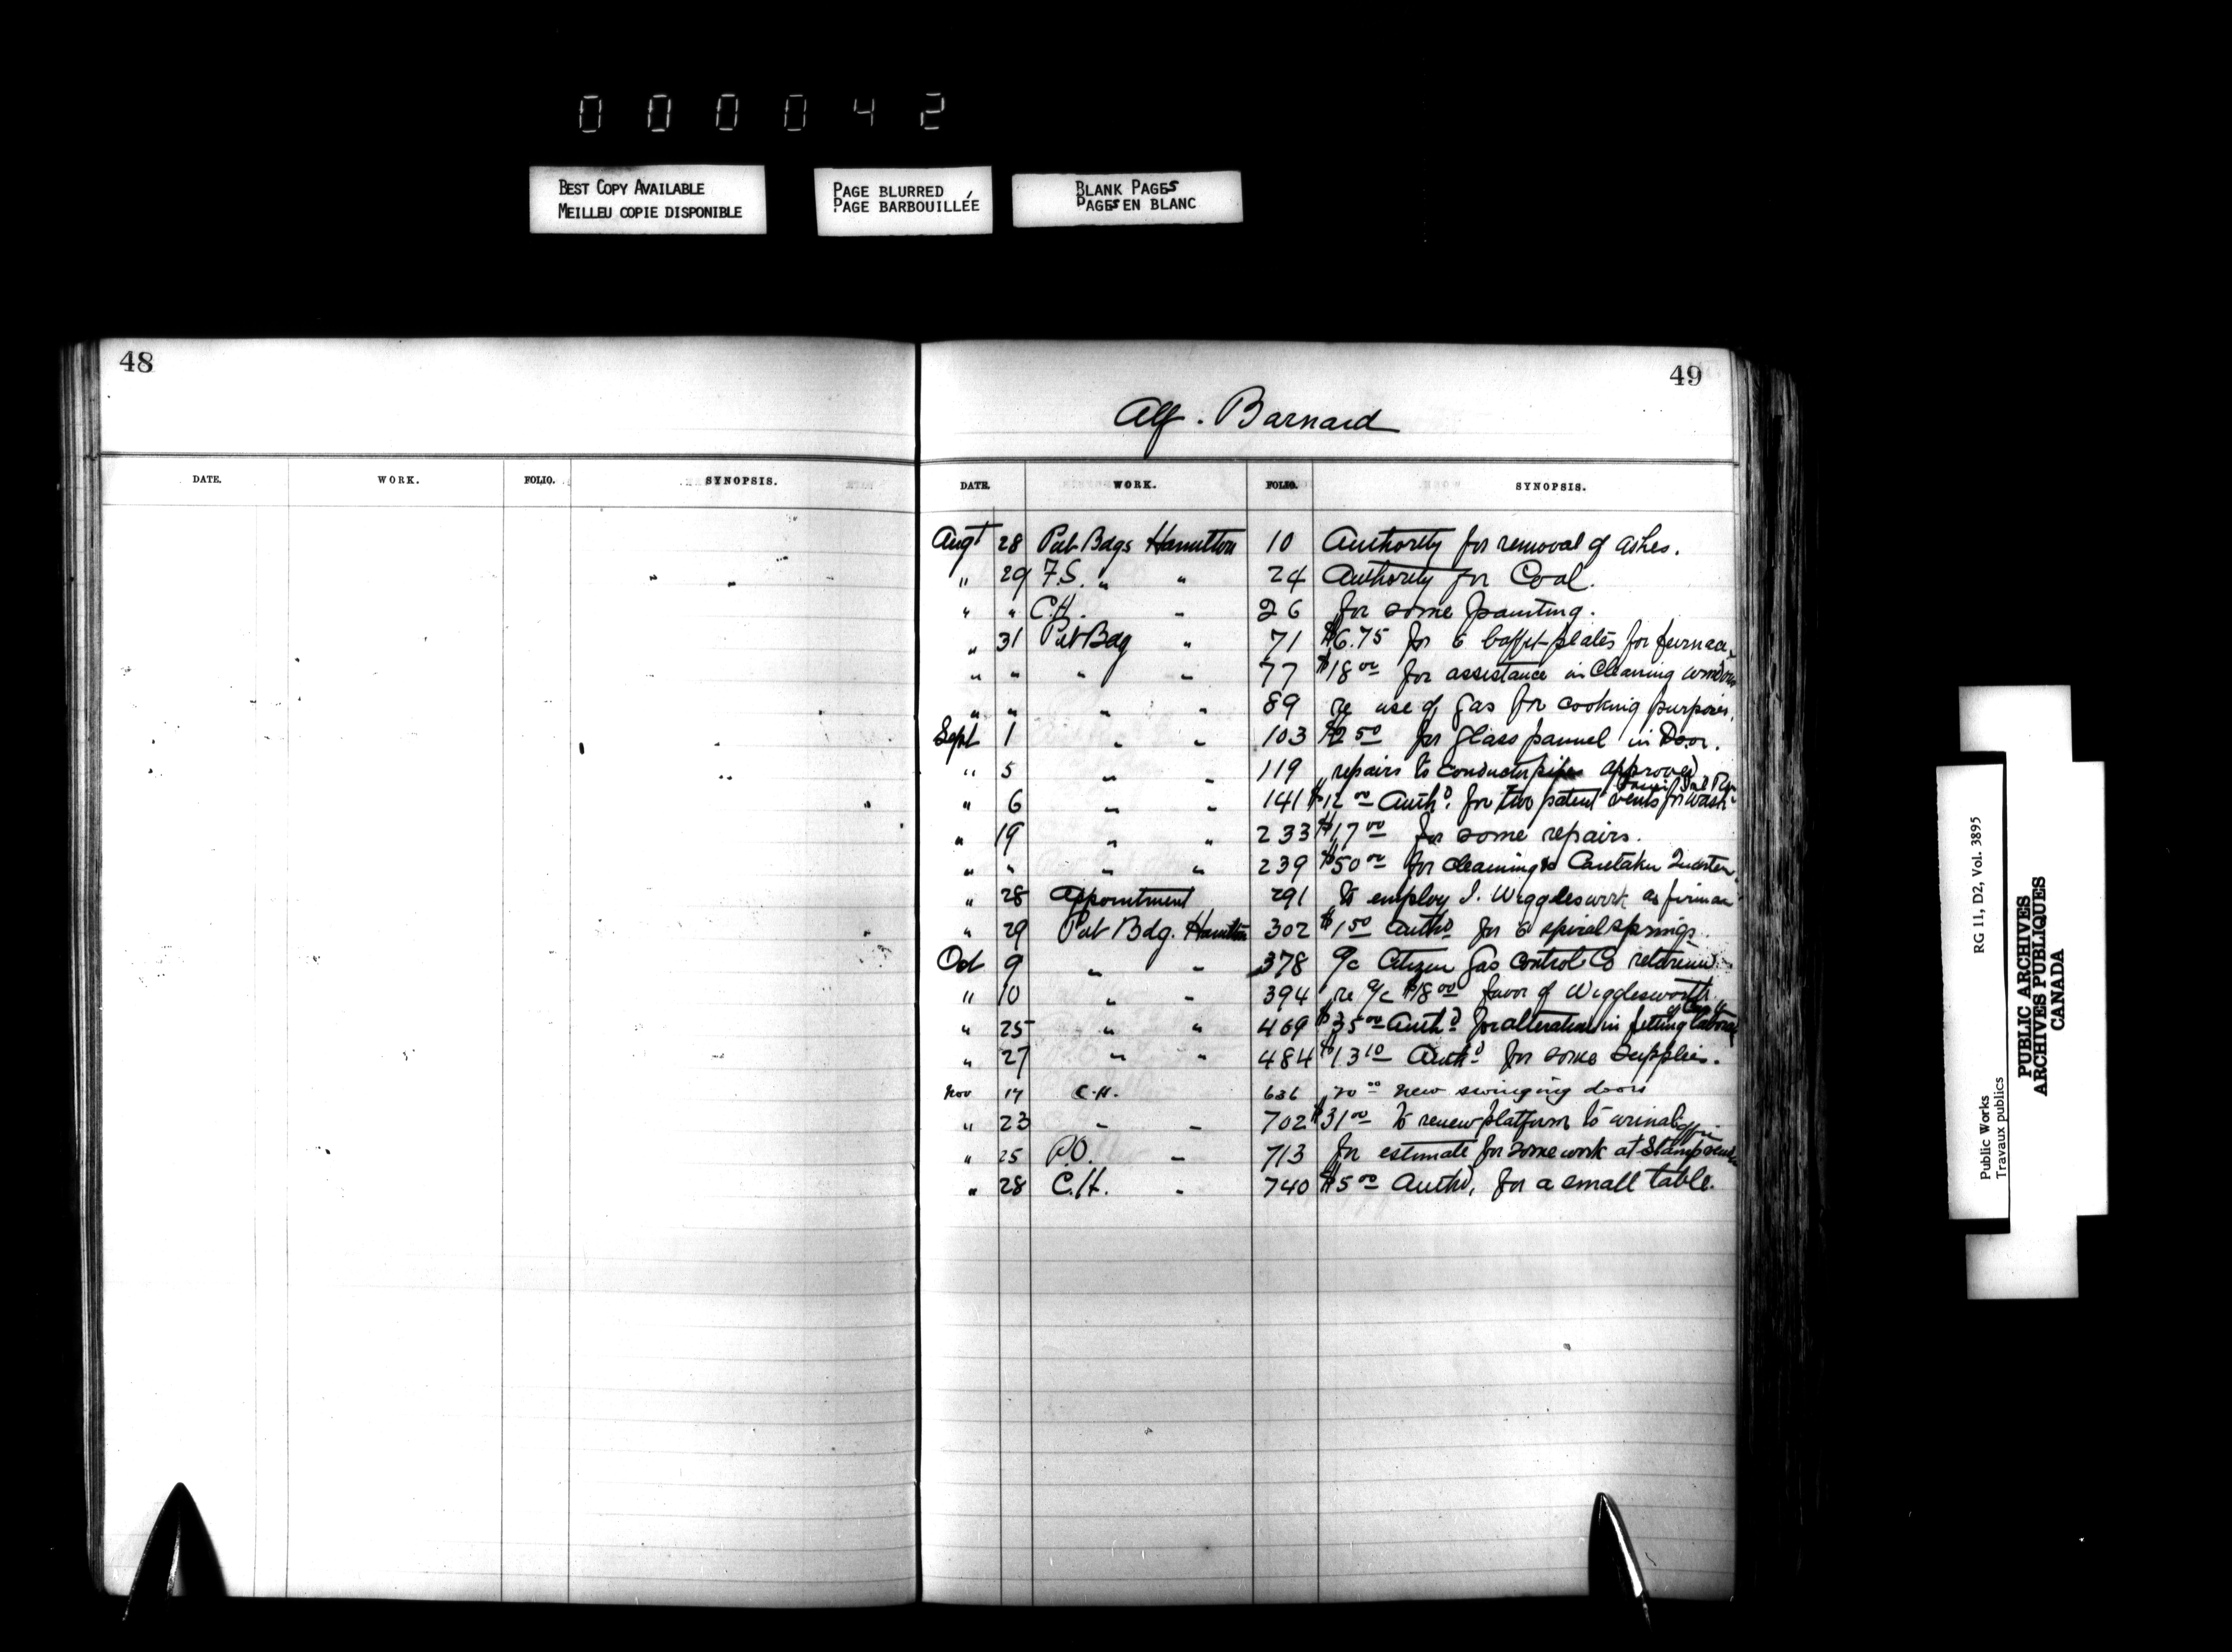 000042
BEST COPY AVAILABLE
MEILLEU COPIE DISPONIBLE
PAGE BLURRED
PAGE BARBOUILLÉE
BLANK PAGES
PAGES EN BLANC
48
DATE. WORK. FOLIO. SYNOPSIS.
49
Alf. Barnard
DATE. WORK. FOLIO. SYNOPSIS.
Augt 28 Pub Bdgs Hamilton 10 Authority for removal of ashes.
" 29 F.S. " " 24 Authority for Coal.
" " C.H. " 26 for some painting.
" 31 Pub Bdg " 71 $6.75 for 6 plates for furnace
" " " " 77 $18 00 for assistance in Cleaning windows
" " " " 89 re use of gas for cooking purposes.
Sept 1 " " 103 $2 50 for glass pannel in Door.
" 5 " " 119 " repairs to conductor pipes approved
" 6 " " 141 $12 00 Authd. for two patent vents for wash
" 19 " " 233 $17 00 for some repairs.
" " " " 239 $50 00 for cleaning Caretaker Quarters
" 28 Appointment 291 to employ J. Wigglesworth as fireman
" 29 Pub Bdg. Hamilton 302 $1 50 Authd for 6 spiral springs.
Oct 9 " " 378 a/c Citizen Gas Control Co returned
" 10 " " 394 " re a/c $18 00 favor of Wigglesworth
" 25 " " 469 $35 00 Authd for alteration in fitting
" 27 " " 484 $13 10 Authd for some supplies.
Nov 17 C.H. 636 " 20 00 new swinging doors
" 23 " " 702 $31 00 to renew platform to urinal
" 25 P.O. " 713 for estimate for some work at Stamp
" 28 C.H. " 740 $5 00 Authd. for a small table.
Public Works RG 11, D2, Vol. 3895
Travaux publics
PUBLIC ARCHIVES
ARCHIVES PUBLIQUES
CANADA